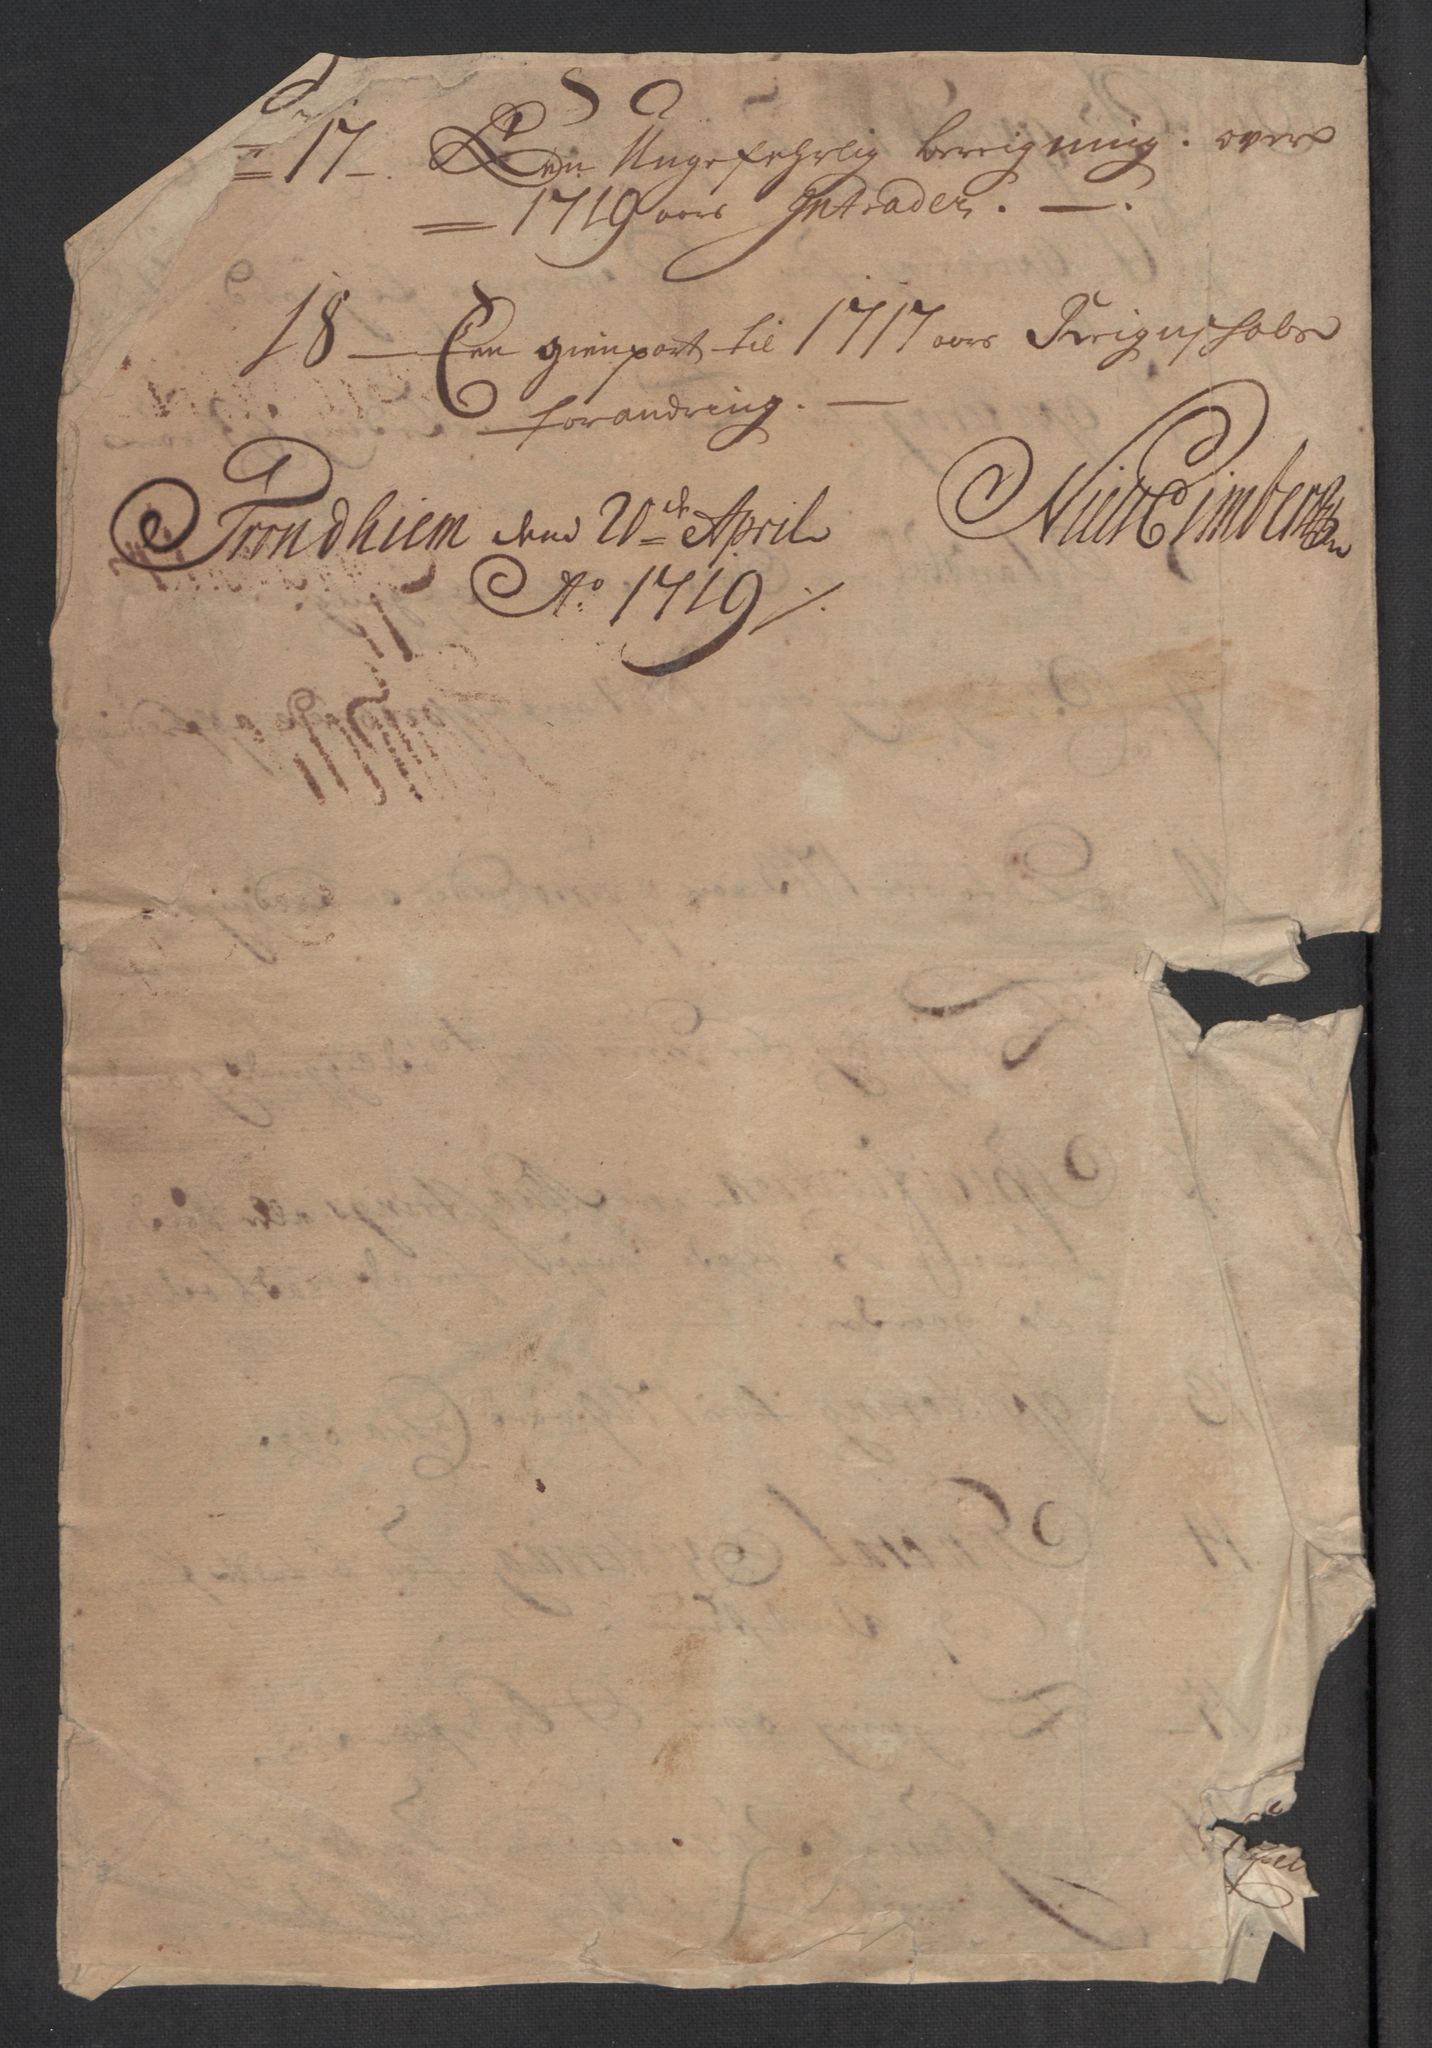 17. Een Ungefehrlig bereigning over
1719 aars Intrader.
18 Een gienpart til 1717 aars Reignschabs
forandring.
Trondhiem den 20de April
Ao 1719